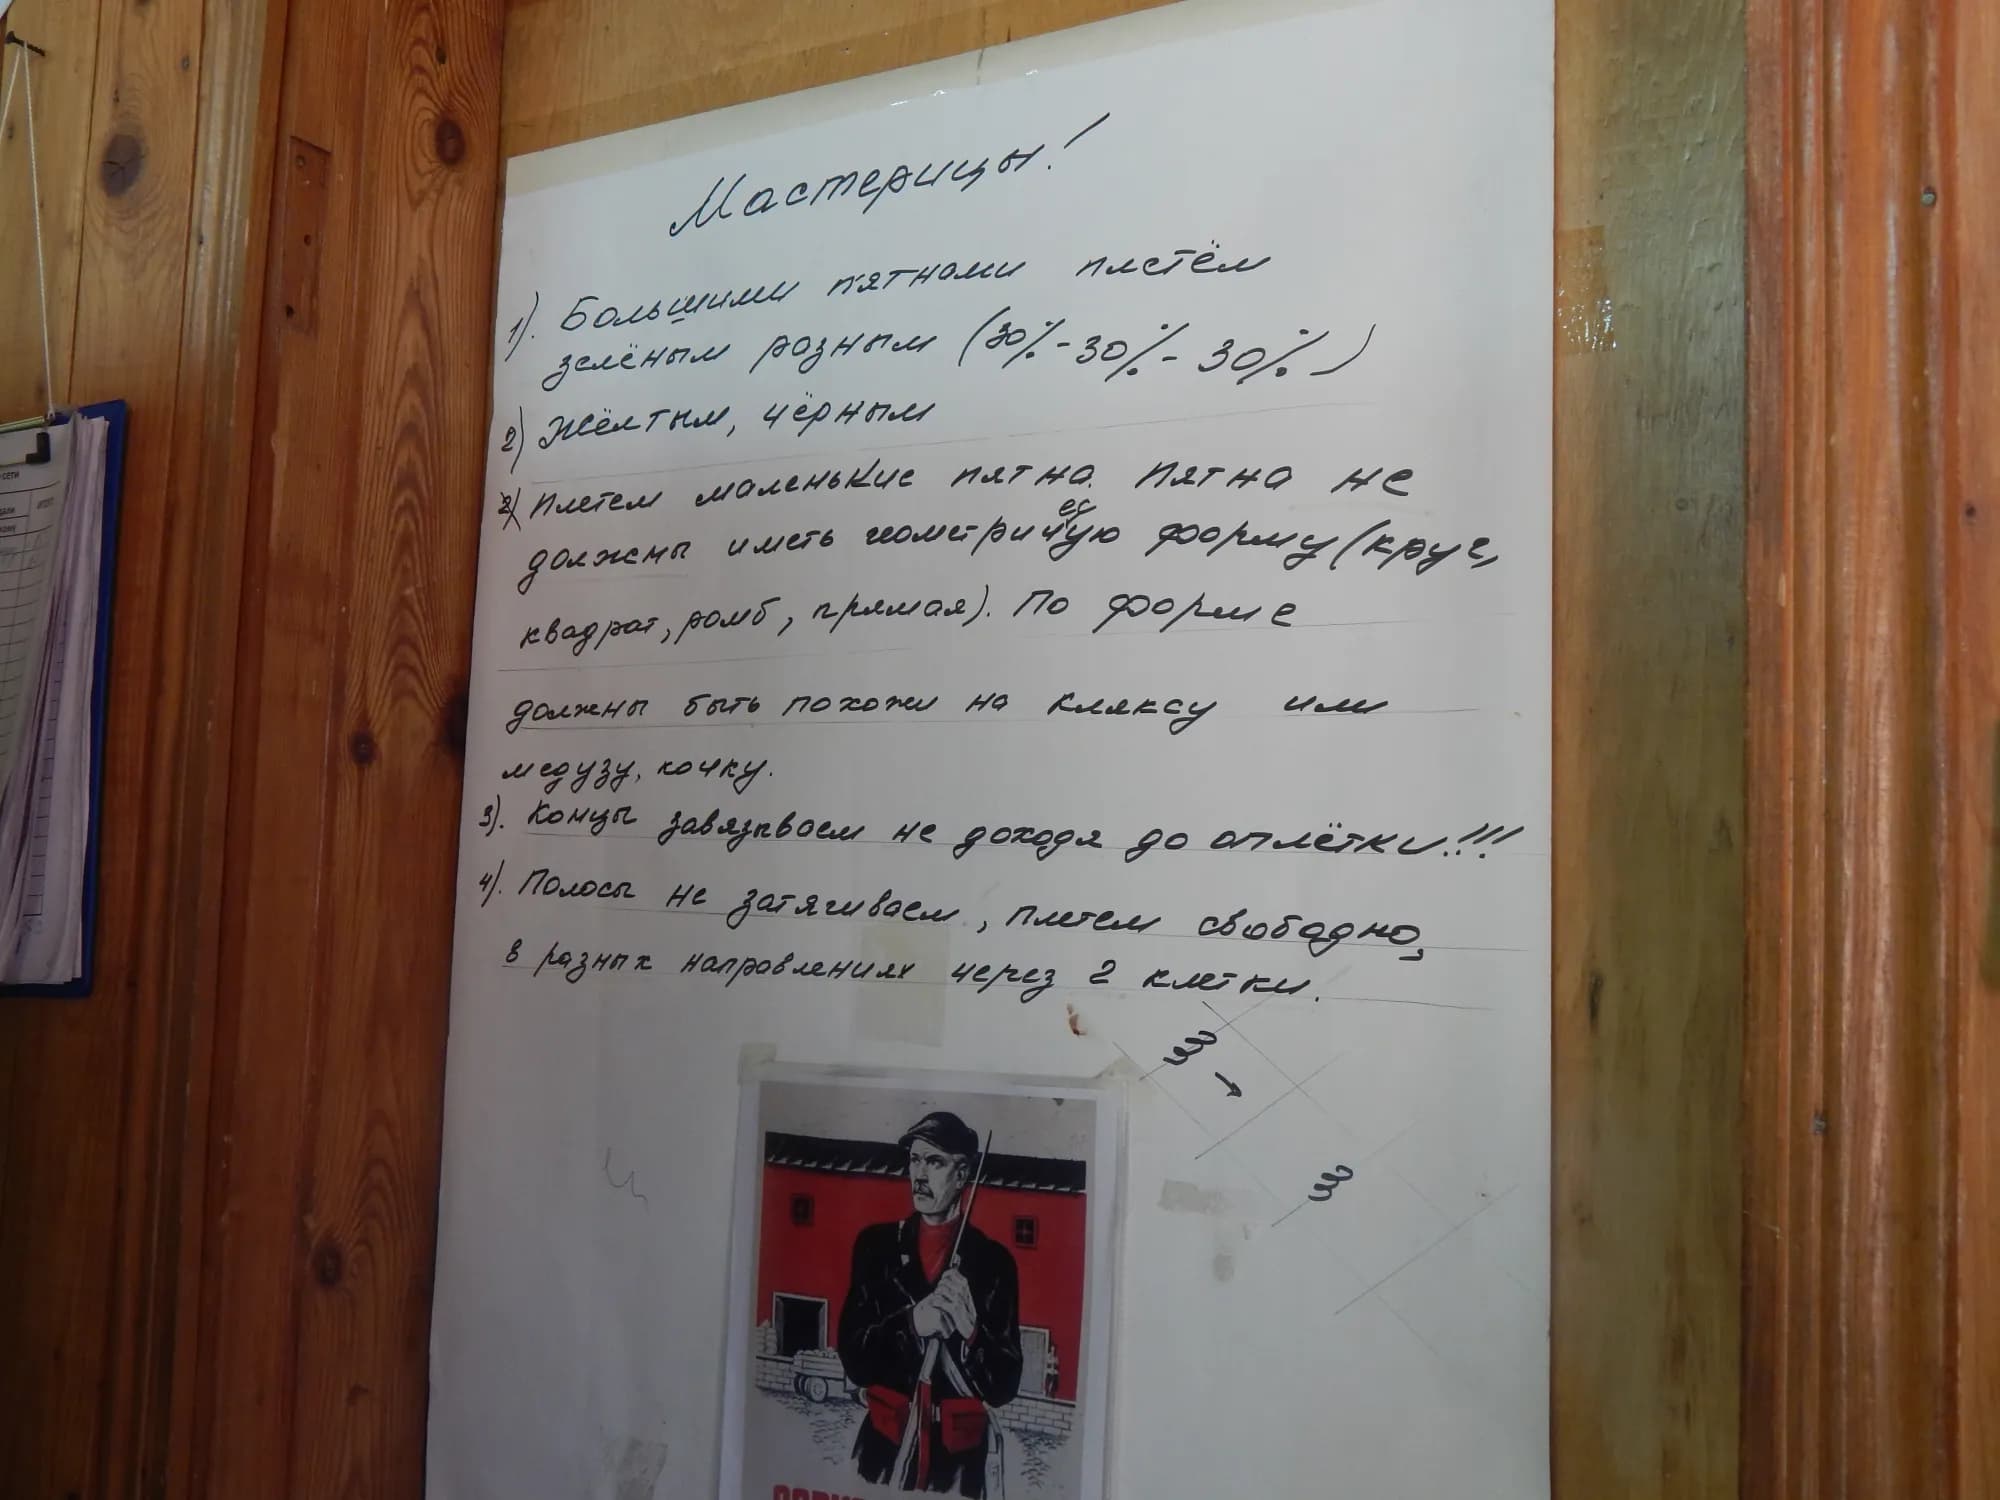 Мастерицы!
1). Большими пятнами плетём
зелёным разным (30%-30%-30%)
2) Жёлтым, чёрным
Плетем маленькие пятна. Пятна не
должны иметь геометрическую форму (круг,
квадрат, ромб, прямая). По форме
должны быть похожи на кляксу или
медузу, кочку.
3). Концы завязываем не доходя до оплётки!!!
4). Полосы не затягиваем, плетем свободно,
в разных направлениях через 2 клетки.